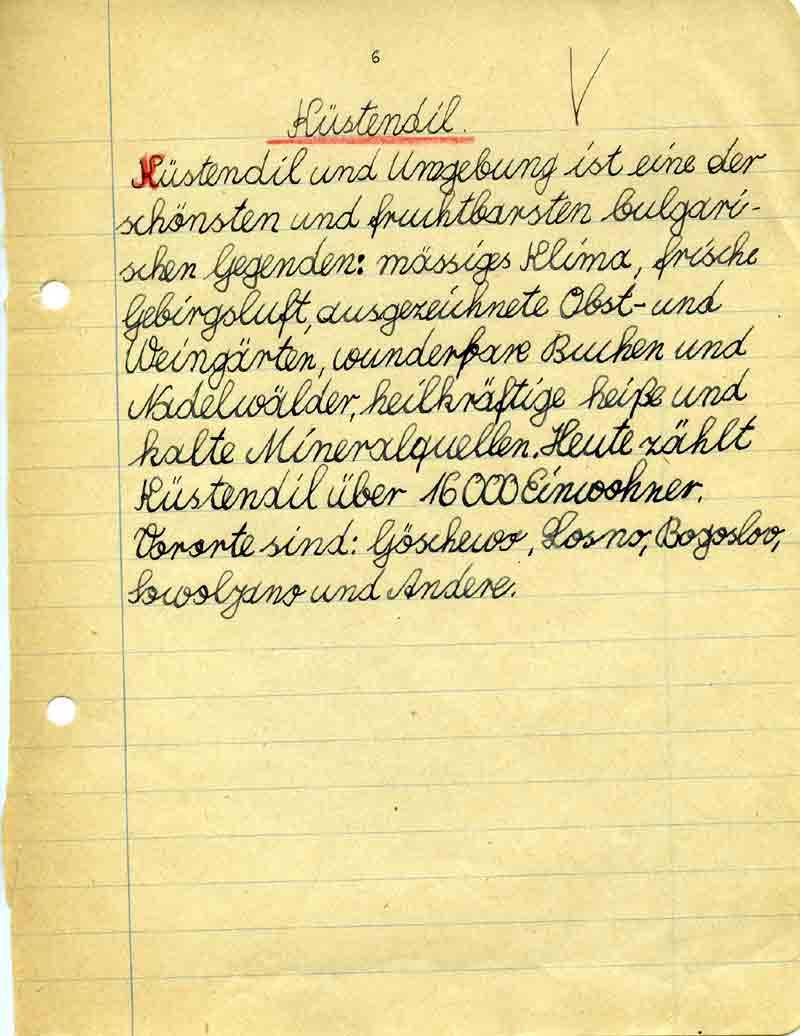 6
Küstendil.
Küstendil und Umgebung ist eine der
schönsten und fruchtbarsten bulgari-
schen Gegenden: mässiges Klima, frische
Gebirgsluft, ausgezeichnete Obst- und
Weingärten, wunderbare Buchen und
Nadelwälder, heilkräftige heiße und
kalte Mineralquellen. Heute zählt
Küstendil über 16000 Einwohner.
Vororte sind: Göschewo, Losno, Bogoslov,
Sowolyano und Andere.